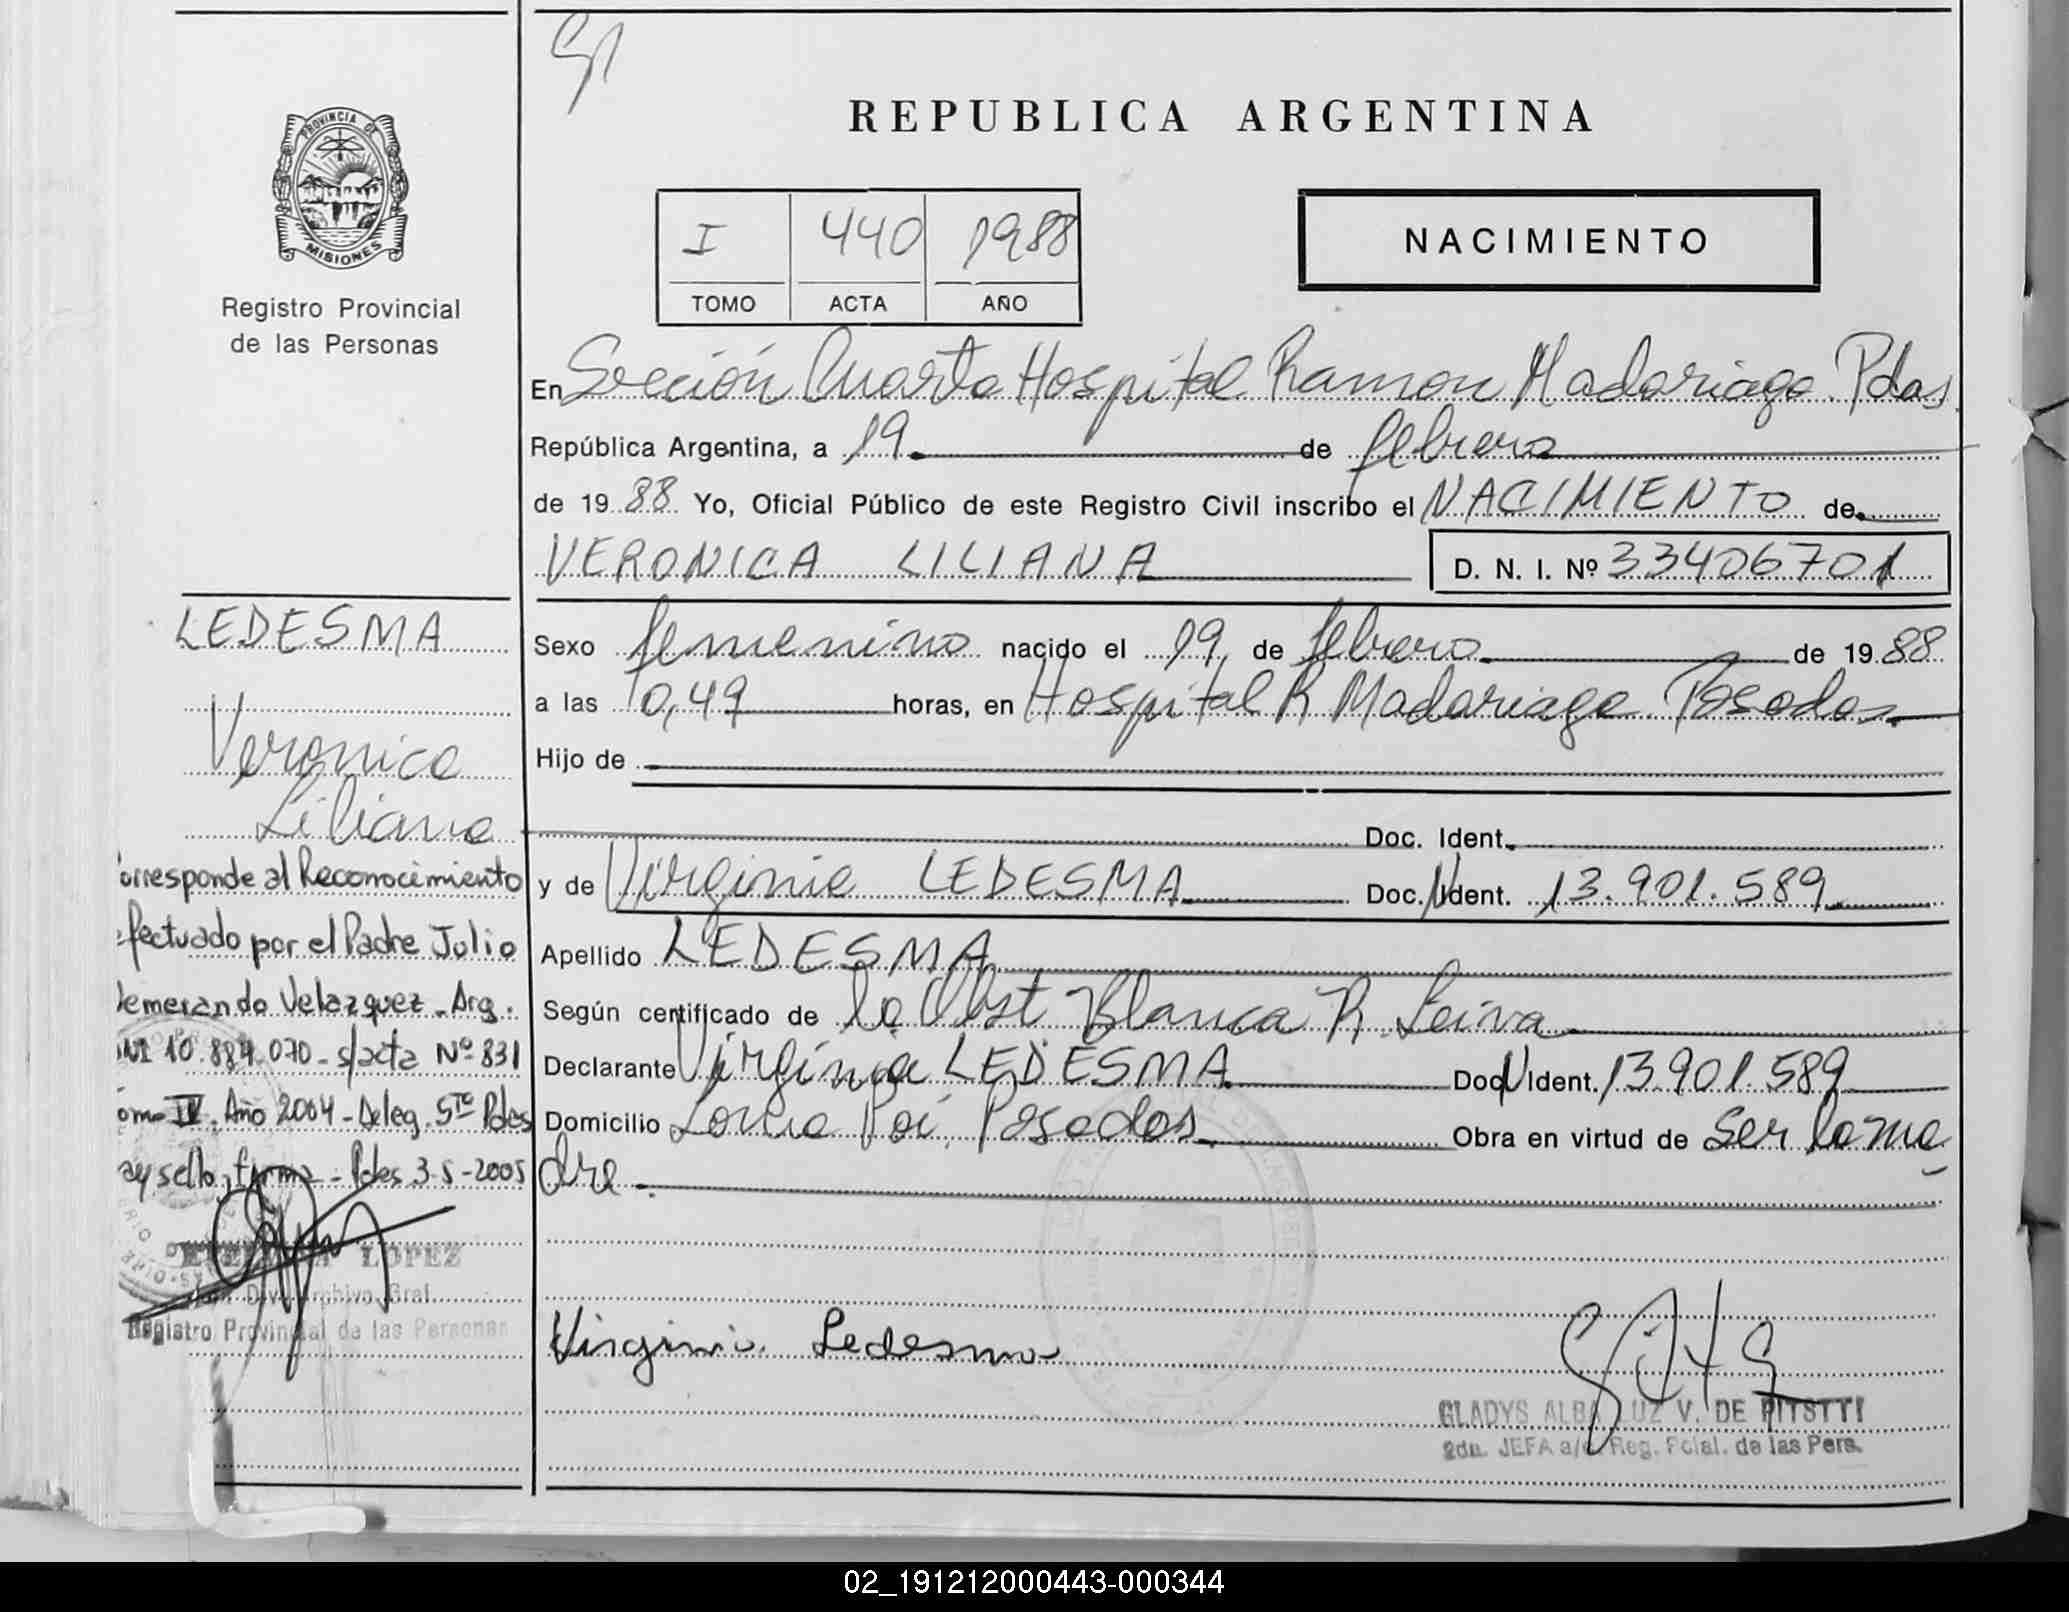 REPUBLICA ARGENTINA
PROVINCIA DE
MISIONES
Registro Provincial
de las Personas
I 440 1988
TOMO ACTA AÑO
NACIMIENTO
En Sección Cuarta Hospital Ramon Madariaga Pdas
República Argentina, a 19 de febrero
de 1988 Yo, Oficial Público de este Registro Civil inscribo el NACIMIENTO de
VERONICA LILIANA D. N. I. Nº 33406701
Sexo femenino nacido el 19 de febrero de 1988
a las 0,49 horas, en Hospital R Madariaga Posadas
Hijo de
Doc. Ident.
y de Virginia LEDESMA Doc. Ident. 13.901.589
Apellido LEDESMA
Según certificado de la Obst Blanca R. Leiva
Declarante Virginia LEDESMA Doc Ident. 13901.589
Domicilio Posadas Obra en virtud de Ser la ma
dre
Virginia Ledesma
GLADYS ALBA LUZ V. DE PITSTTI
2da. JEFA a/c Reg. Pcial. de las Pers.
LEDESMA
Veronica
Liliana
orresponde al Reconocimiento
fectuado por el Padre Julio
emerando Velazquez - Arg.
NI 10.884.070 - s/acta Nº 831
omo IV. Año 2004 - Deleg. 5ta Pdas
ay sello, firma - Pdas 3-5-2005
LOPEZ
Div. Archivo Gral.
Registro Provincial de las Personas
02_191212000443-000344